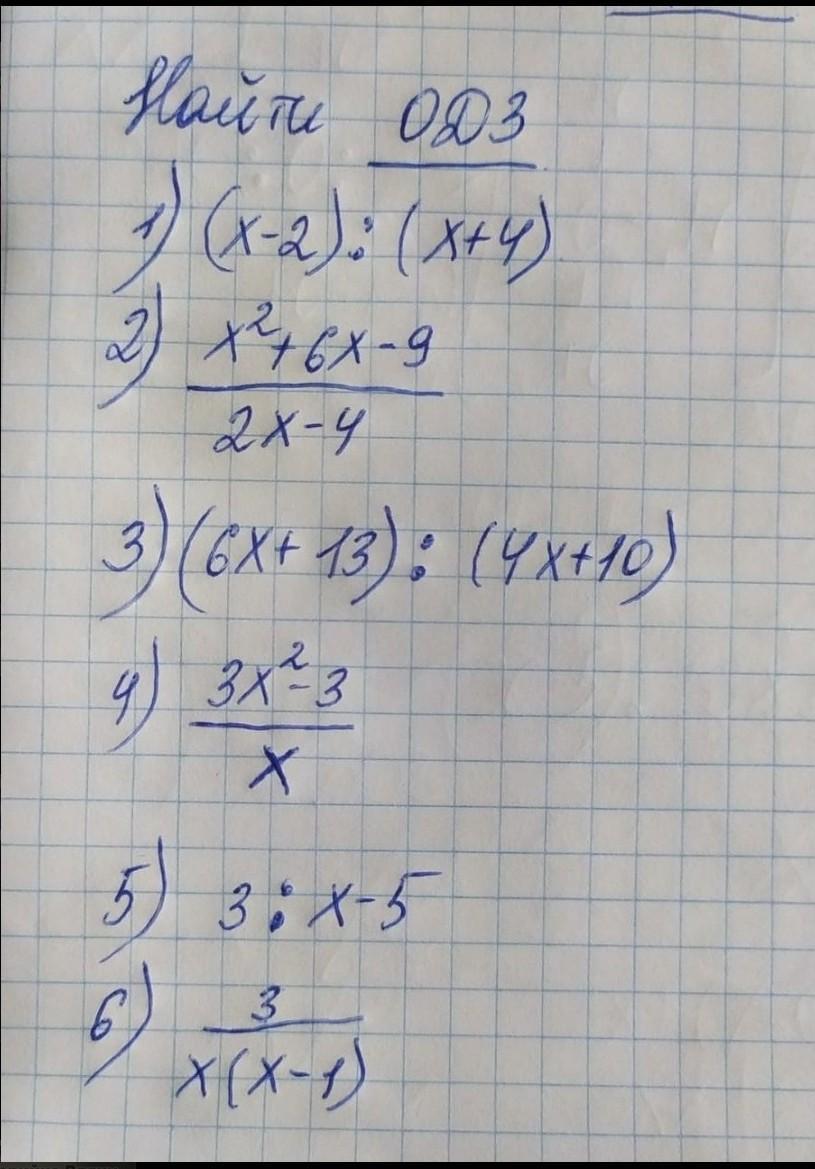 Найти ОДЗ
1) (x-2):(x+4)
2) x²+6x-9
2x-4
3) (6x+13):(4x+10)
4) 3x²-3
x
5) 3:x-5
6) 3
x(x-1)